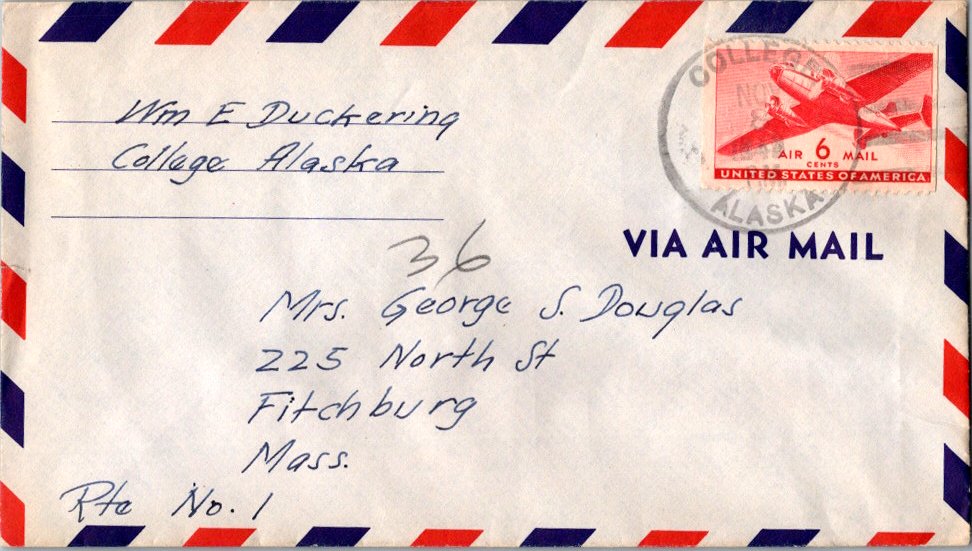 Wm E Duckering
College Alaska
COLLEGE
NOV
ALASKA
AIR 6 MAIL
CENTS
UNITED STATES OF AMERICA
VIA AIR MAIL
36
Mrs. George S. Douglas
225 North St
Fitchburg
Mass.
Rte No. 1